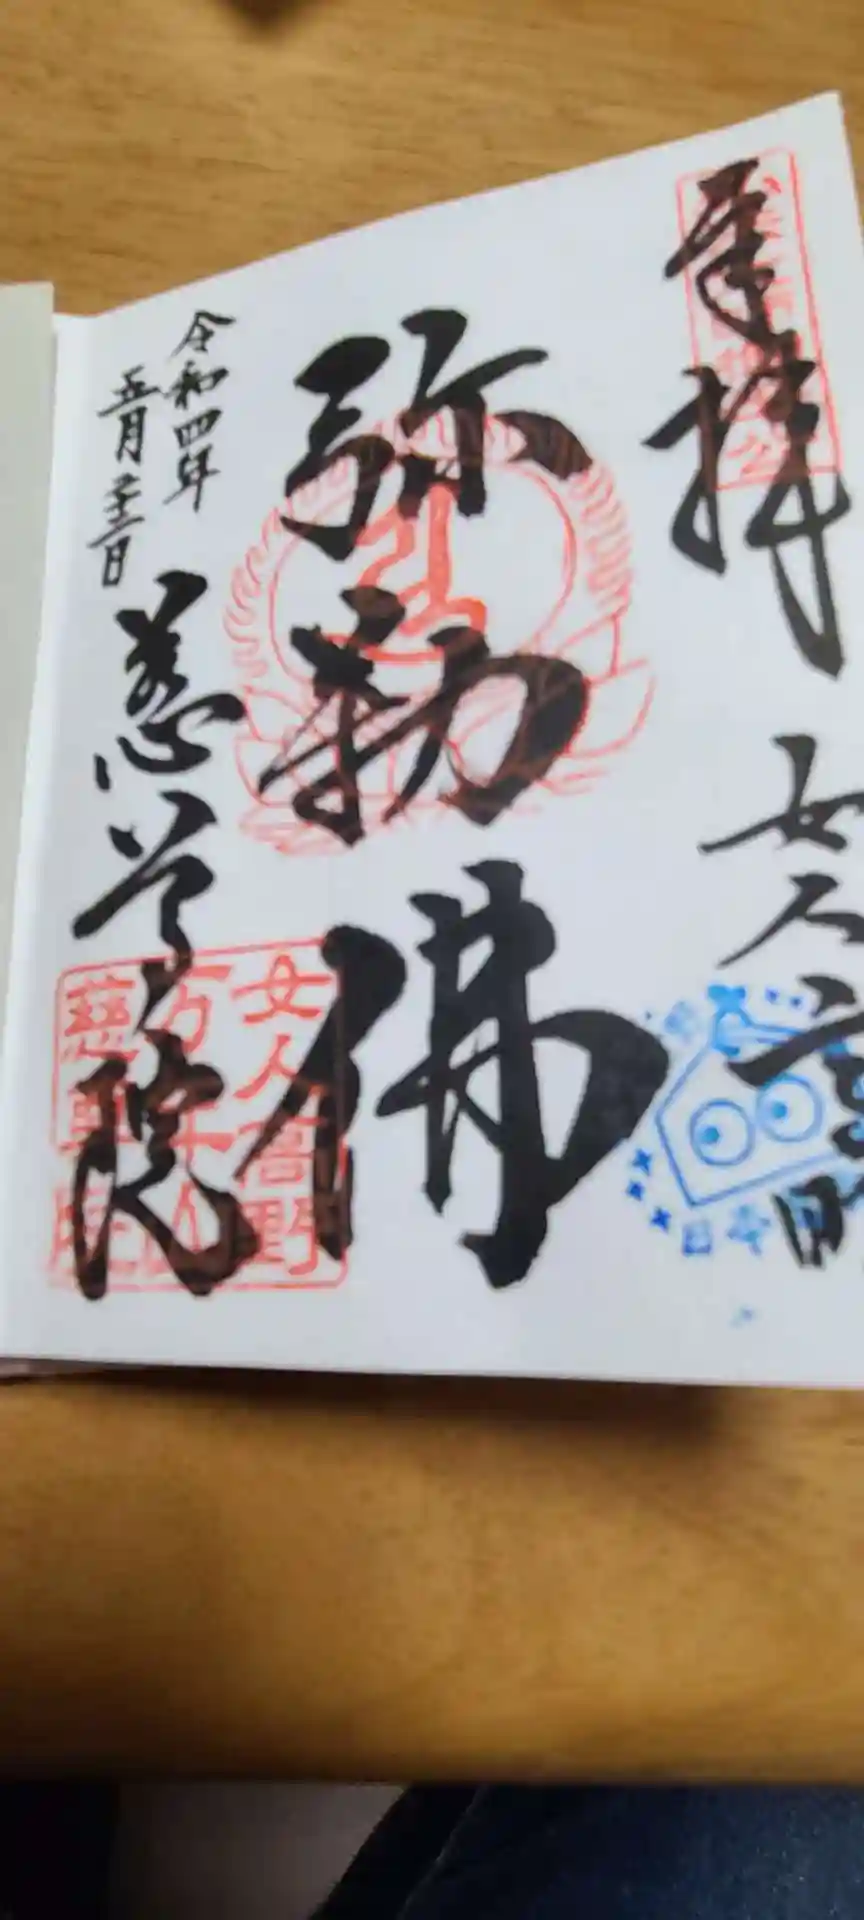 奉拝
女人高野
弥勒佛
令和四年
五月三十一日
慈尊院
女人高野
万年山
慈尊院